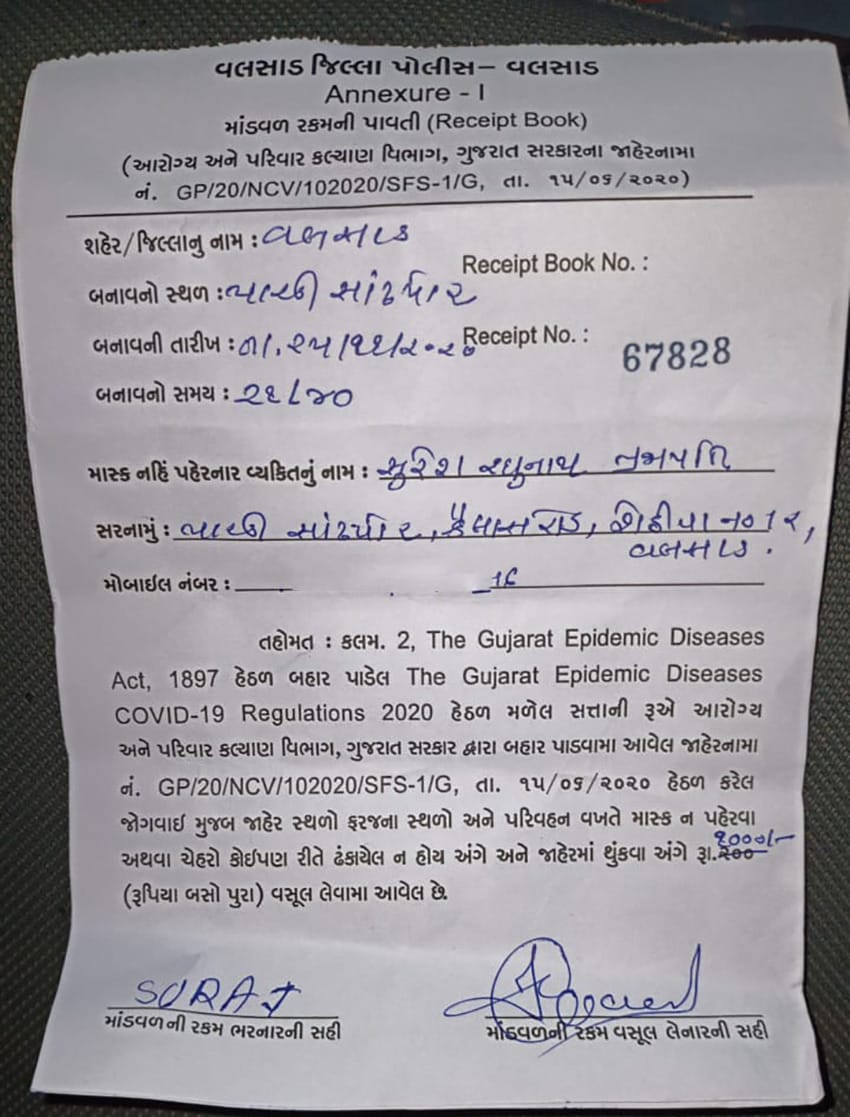 વલસાડ જિલ્લા પોલીસ– વલસાડ
Annexure - I
માંડવળ રકમની પાવતી (Receipt Book)
(આરોગ્ય અને પરિવાર કલ્યાણ વિભાગ, ગુજરાત સરકારના જાહેરનામા
નં. GP/20/NCV/102020/SFS-1/G, તા. ૧૫/૦૬/૨૦૨૦)
શહેર/જિલ્લાનુ નામ : વલસાડ
Receipt Book No. :
બનાવનો સ્થળ :
બનાવની તારીખ :
Receipt No. : 67828
બનાવનો સમય :
માસ્ક નહિં પહેરનાર વ્યકિતનું નામ : સુરેશ રઘુનાથ
સરનામું : વલસાડ.
મોબાઈલ નંબર :
તહોમત : કલમ. 2, The Gujarat Epidemic Diseases
Act, 1897 હેઠળ બહાર પાડેલ The Gujarat Epidemic Diseases
COVID-19 Regulations 2020 હેઠળ મળેલ સત્તાની રૂએ આરોગ્ય
અને પરિવાર કલ્યાણ વિભાગ, ગુજરાત સરકાર દ્વારા બહાર પાડવામા આવેલ જાહેરનામા
નં. GP/20/NCV/102020/SFS-1/G, તા. ૧૫/૦૬/૨૦૨૦ હેઠળ કરેલ
જોગવાઇ મુજબ જાહેર સ્થળો ફરજના સ્થળો અને પરિવહન વખતે માસ્ક ન પહેરવા
અથવા ચેહરો કોઈપણ રીતે ઢંકાયેલ ન હોય અંગે અને જાહેરમાં થુંકવા અંગે રૂા.૨૦૦ ૧૦૦૦/-
(રૂપિયા બસો પુરા) વસૂલ લેવામા આવેલ છે.
SURAJ
માંડવળની રકમ ભરનારની સહી
માંડવળની રકમ વસૂલ લેનારની સહી